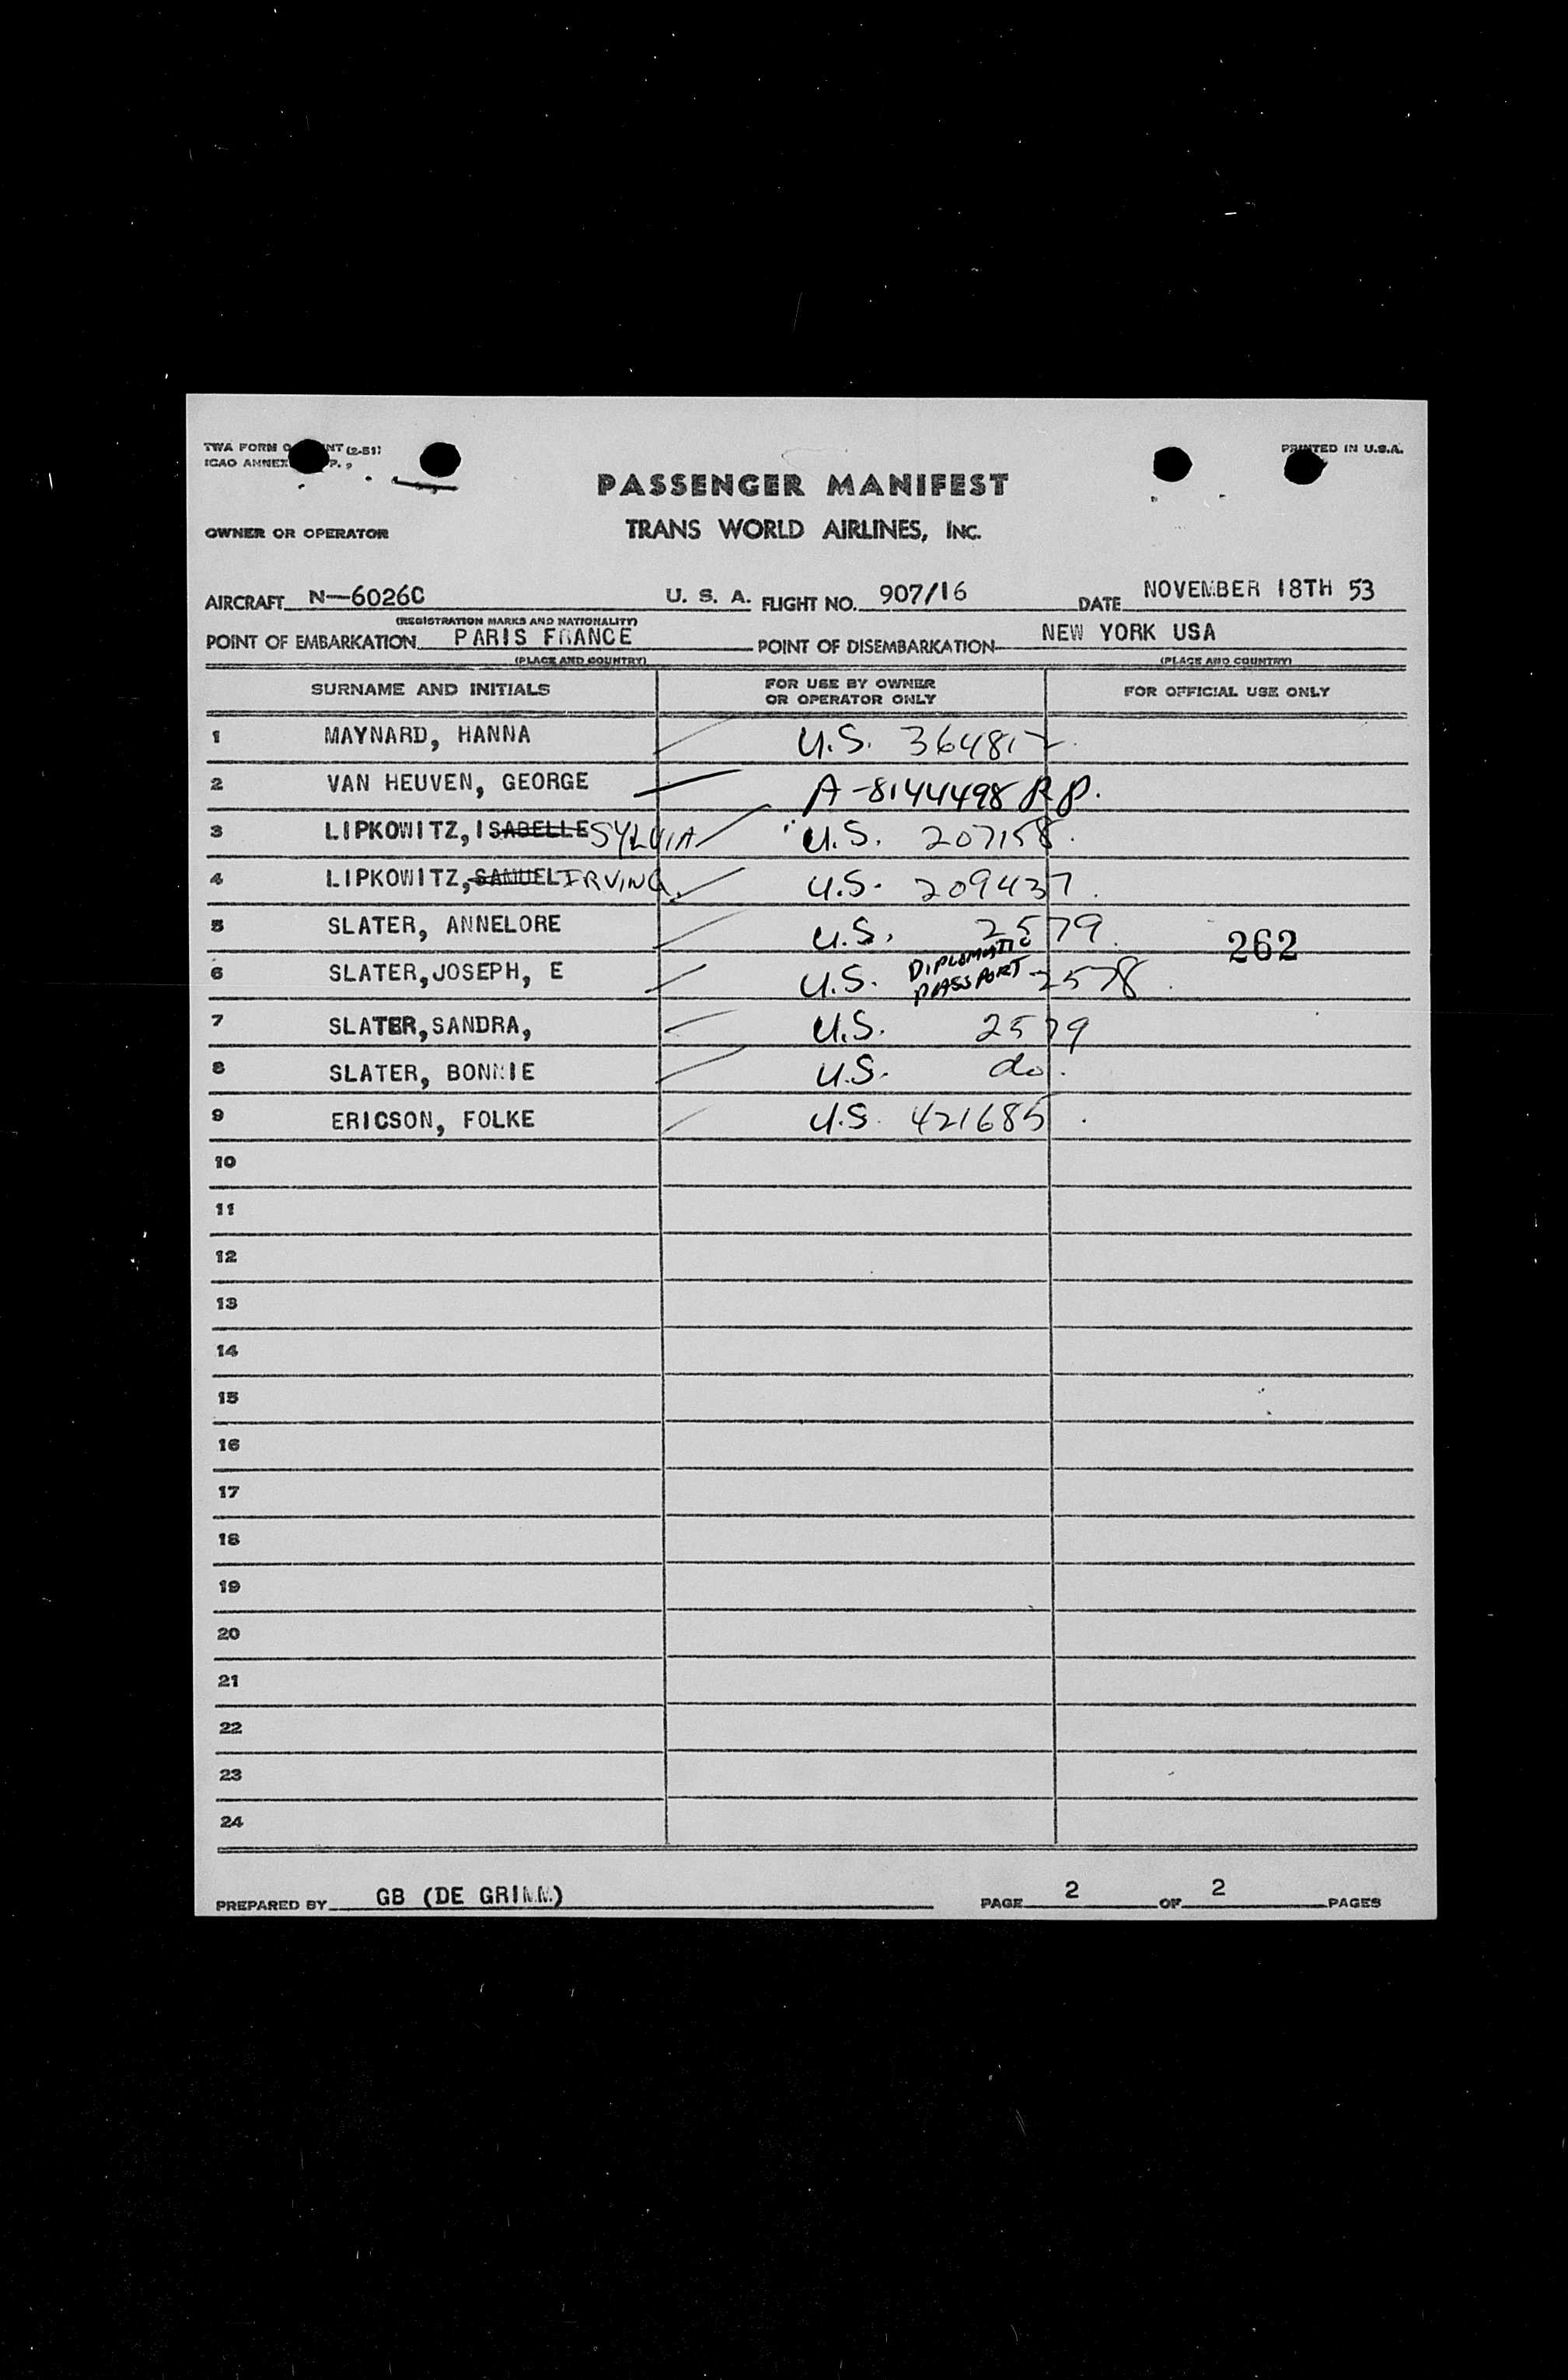 TWA FORM (2-51)
PRINTED IN U.S.A.
ICAO ANNEX P. 9
PASSENGER MANIFEST
OWNER OR OPERATOR TRANS WORLD AIRLINES, INC.
AIRCRAFT N-6026C U. S. A. FLIGHT NO. 907/16 DATE NOVEMBER 18TH 53
(REGISTRATION MARKS AND NATIONALITY)
POINT OF EMBARKATION PARIS FRANCE POINT OF DISEMBARKATION NEW YORK USA
(PLACE AND COUNTRY) (PLACE AND COUNTRY)
SURNAME AND INITIALS FOR USE BY OWNER OR OPERATOR ONLY FOR OFFICIAL USE ONLY
1 MAYNARD, HANNA U.S.
2 VAN HEUVEN, GEORGE A-8144498 RP.
3 LIPKOWITZ, ISABELLE SYLVIA U.S. 207158
4 LIPKOWITZ, SAMUEL IRVING U.S. 209437
5 SLATER, ANNELORE U.S. 2579 262
6 SLATER, JOSEPH, E U.S. DIPLOMATIC PASSPORT - 2578
7 SLATER, SANDRA, U.S. 2579
8 SLATER, BONNIE U.S. do.
9 ERICSON, FOLKE U.S. 421685
10
11
12
13
14
15
16
17
18
19
20
21
22
23
24
PREPARED BY GB (DE GRIMM) PAGE 2 OF 2 PAGES